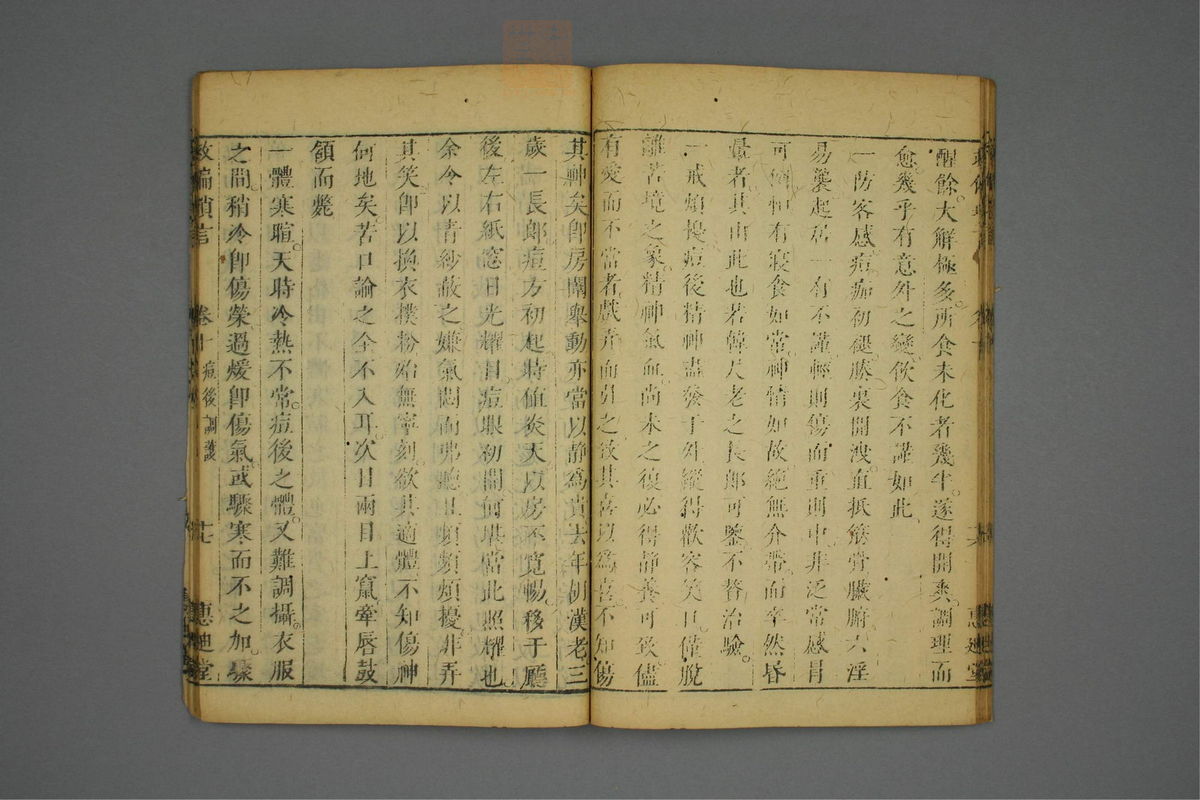 醒餘大解極多所食未化者幾半遂得開爽調理而
愈幾乎有意外之變飲食不謹如此
一防客感痘痂初褪腠裏開洩直抵筋骨臟腑六淫
易襲起居一有不謹輕則傷而重則中非泛常感冒
可 有寢食如常神情如故絕無介帶而卒然昏
暈者其由此也若韓尺老之長郎可鑒不替治驗
一戒煩惱痘後精神盡發于外縱得歡容笑口僅脫
離苦境之象精神氣血尚未之復必得靜養可致儘
有愛而不當者戲弄而引之致其喜以為喜不知傷
其神矣卽房闈舉動亦當以靜為貴去年胡漢老三
歲一長郎痘方初起時值炎天以房不寬暢移于廳
後左右紙窓日光耀目痘眼初開何堪當此照耀也
余令以青紗蔽之嫌氣悶而弗聽且頻頻煩擾非弄
其笑卽以換衣撲粉始無寧刻欲其適體不知傷神
何地矣苦口論之全不入耳次日兩目上竄牽唇鼓
頷而斃
一體寒暄天時冷熱不常痘後之體又難調攝衣服
之間稍冷卽傷榮過煖卽傷氣或驟寒而不之加驟
救偏瑣言 卷十 痘後調護 十七 惠迪堂